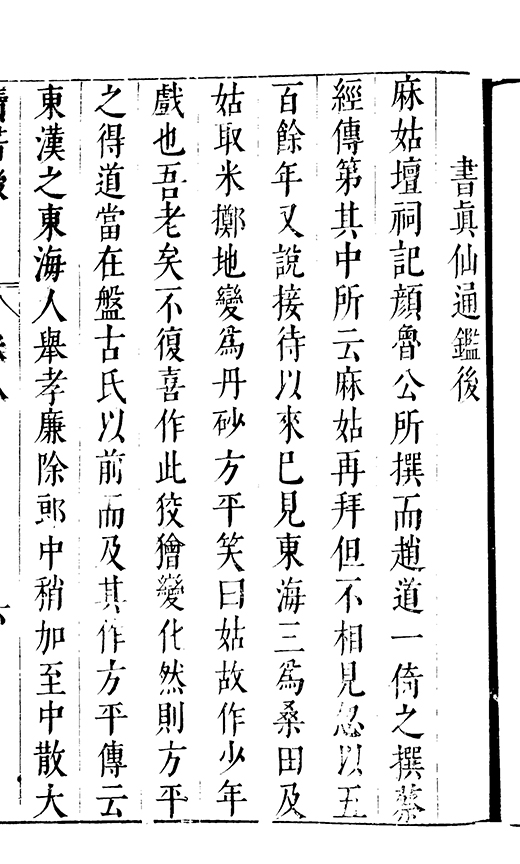 書眞仙通鑑後
麻姑壇祠記顔魯公所撰而趙道一倚之撰蔡
經傳第其中所云麻姑再拜但不相見忽以五
百餘年又說接待以來巳見東海三為桑田及
姑取米擲地變為丹砂方平笑曰姑故作少年
戲也吾老矣不復喜作此狡獪變化然則方平
之得道當在盤古氏以前而及其作方平傳云
東漢之東海人舉孝廉除郎中稍加至中散大